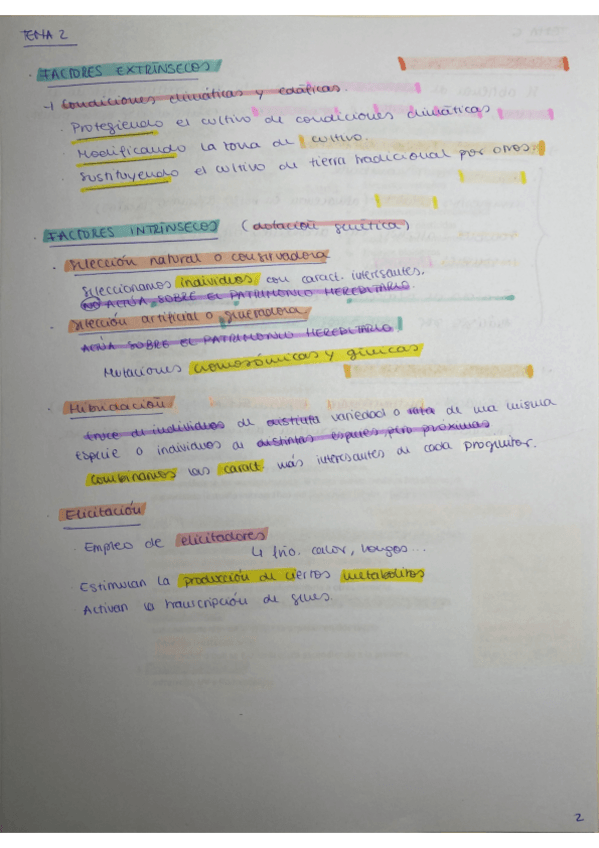 TEMA 2
· FACTORES EXTRÍNSECOS
→ Condiciones climáticas y edáficas.
· Protegiendo el cultivo de condiciones climáticas
· Modificando la zona de cultivo.
· Sustituyendo el cultivo de tierra tradicional por otros.
· FACTORES INTRÍNSECOS (dotación genética)
· Selección natural o conservadora
Seleccionamos individuos con caract. interesantes.
NO ACTÚA SOBRE EL PATRIMONIO HEREDITARIO.
· Selección artificial o generadora
ACTÚA SOBRE EL PATRIMONIO HEREDITARIO
Mutaciones cromosómicas y génicas
· Hibridación
Cruce de individuos de distinta variedad o raza de una misma
especie o individuos de distintas especies pero próximas
combinamos las caract. más interesantes de cada progenitor.
· Elicitación
· Empleo de elicitadores
↳ frío, calor, hongos...
Estimulan la producción de ciertos metabolitos
Activan la transcripción de genes.
2